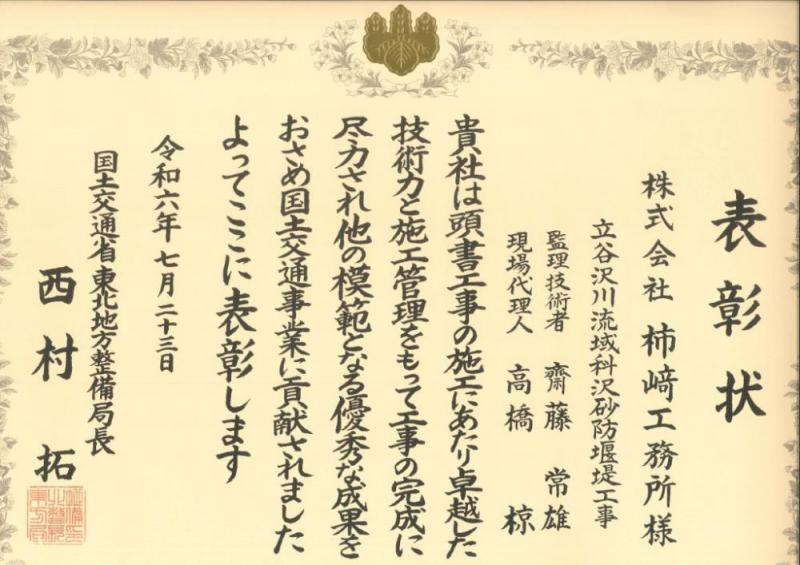 表彰状
株式会社 柿﨑工務所様
立谷沢川流域科沢砂防堰堤工事
監理技術者 齋藤 常雄
現場代理人 高橋 椋
貴社は頭書工事の施工にあたり卓越した
技術力と施工管理をもって工事の完成に
尽力され他の模範となる優秀な成果を
おさめ国土交通事業に貢献されました
よってここに表彰します
令和六年七月二十三日
国土交通省東北地方整備局長
西村 拓